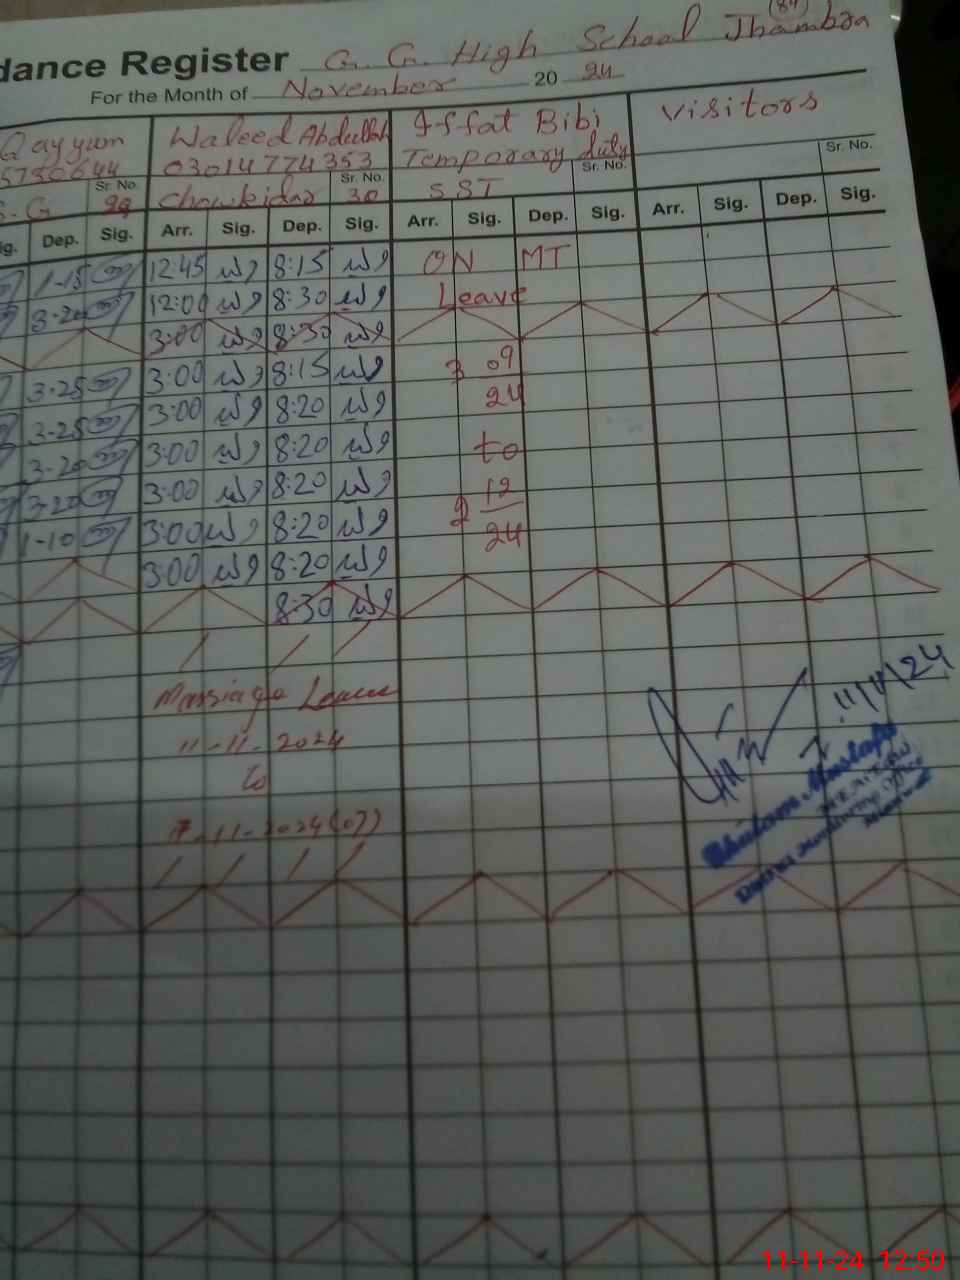 (84)
dance Register G. G. High School Jhambra
For the Month of November 20 24
Qayyum Waleed Abdullah Iffat Bibi Visitors
5730644 03014774353 Temporary duty
Sr. No. Sr. No. Sr. No. Sr. No.
S.G 29 Chowkidar 30 SST
ig. Dep. Sig. Arr. Sig. Dep. Sig. Arr. Sig. Dep. Sig. Arr. Sig. Dep. Sig.
1-15 12:45 8:15 ON MT
3-20 12:00 8:30 Leave
3:00 8:30
3-25 3:00 8:15 3 09
3-25 3:00 8:20 24
3-20 3:00 8:20 to
3-20 3:00 8:20 2 12
1-10 3:00 8:20 24
3:00 8:20
8:30
Marriage Leave
11-11-2024
to
17-11-2024(07)
11/11/24
Ghulam Mustafa
11-11-24 12:50